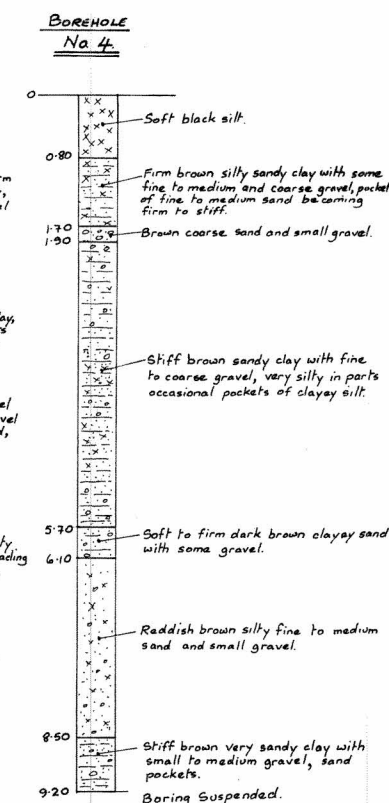 BOREHOLE
No 4.
0
Soft black silt.
0.80
Firm brown silty sandy clay with some
fine to medium and coarse gravel, pocket
of fine to medium sand becoming
firm to stiff.
1.70
Brown coarse sand and small gravel.
1.90
Stiff brown sandy clay with fine
to coarse gravel, very silty in parts
occasional pockets of clayey silt.
5.70
Soft to firm dark brown clayay sand
with some gravel.
6.10
Reddish brown silty fine to medium
sand and small gravel.
8.50
Stiff brown very sandy clay with
small to medium gravel, sand
pockets.
9.20
Boring Suspended.